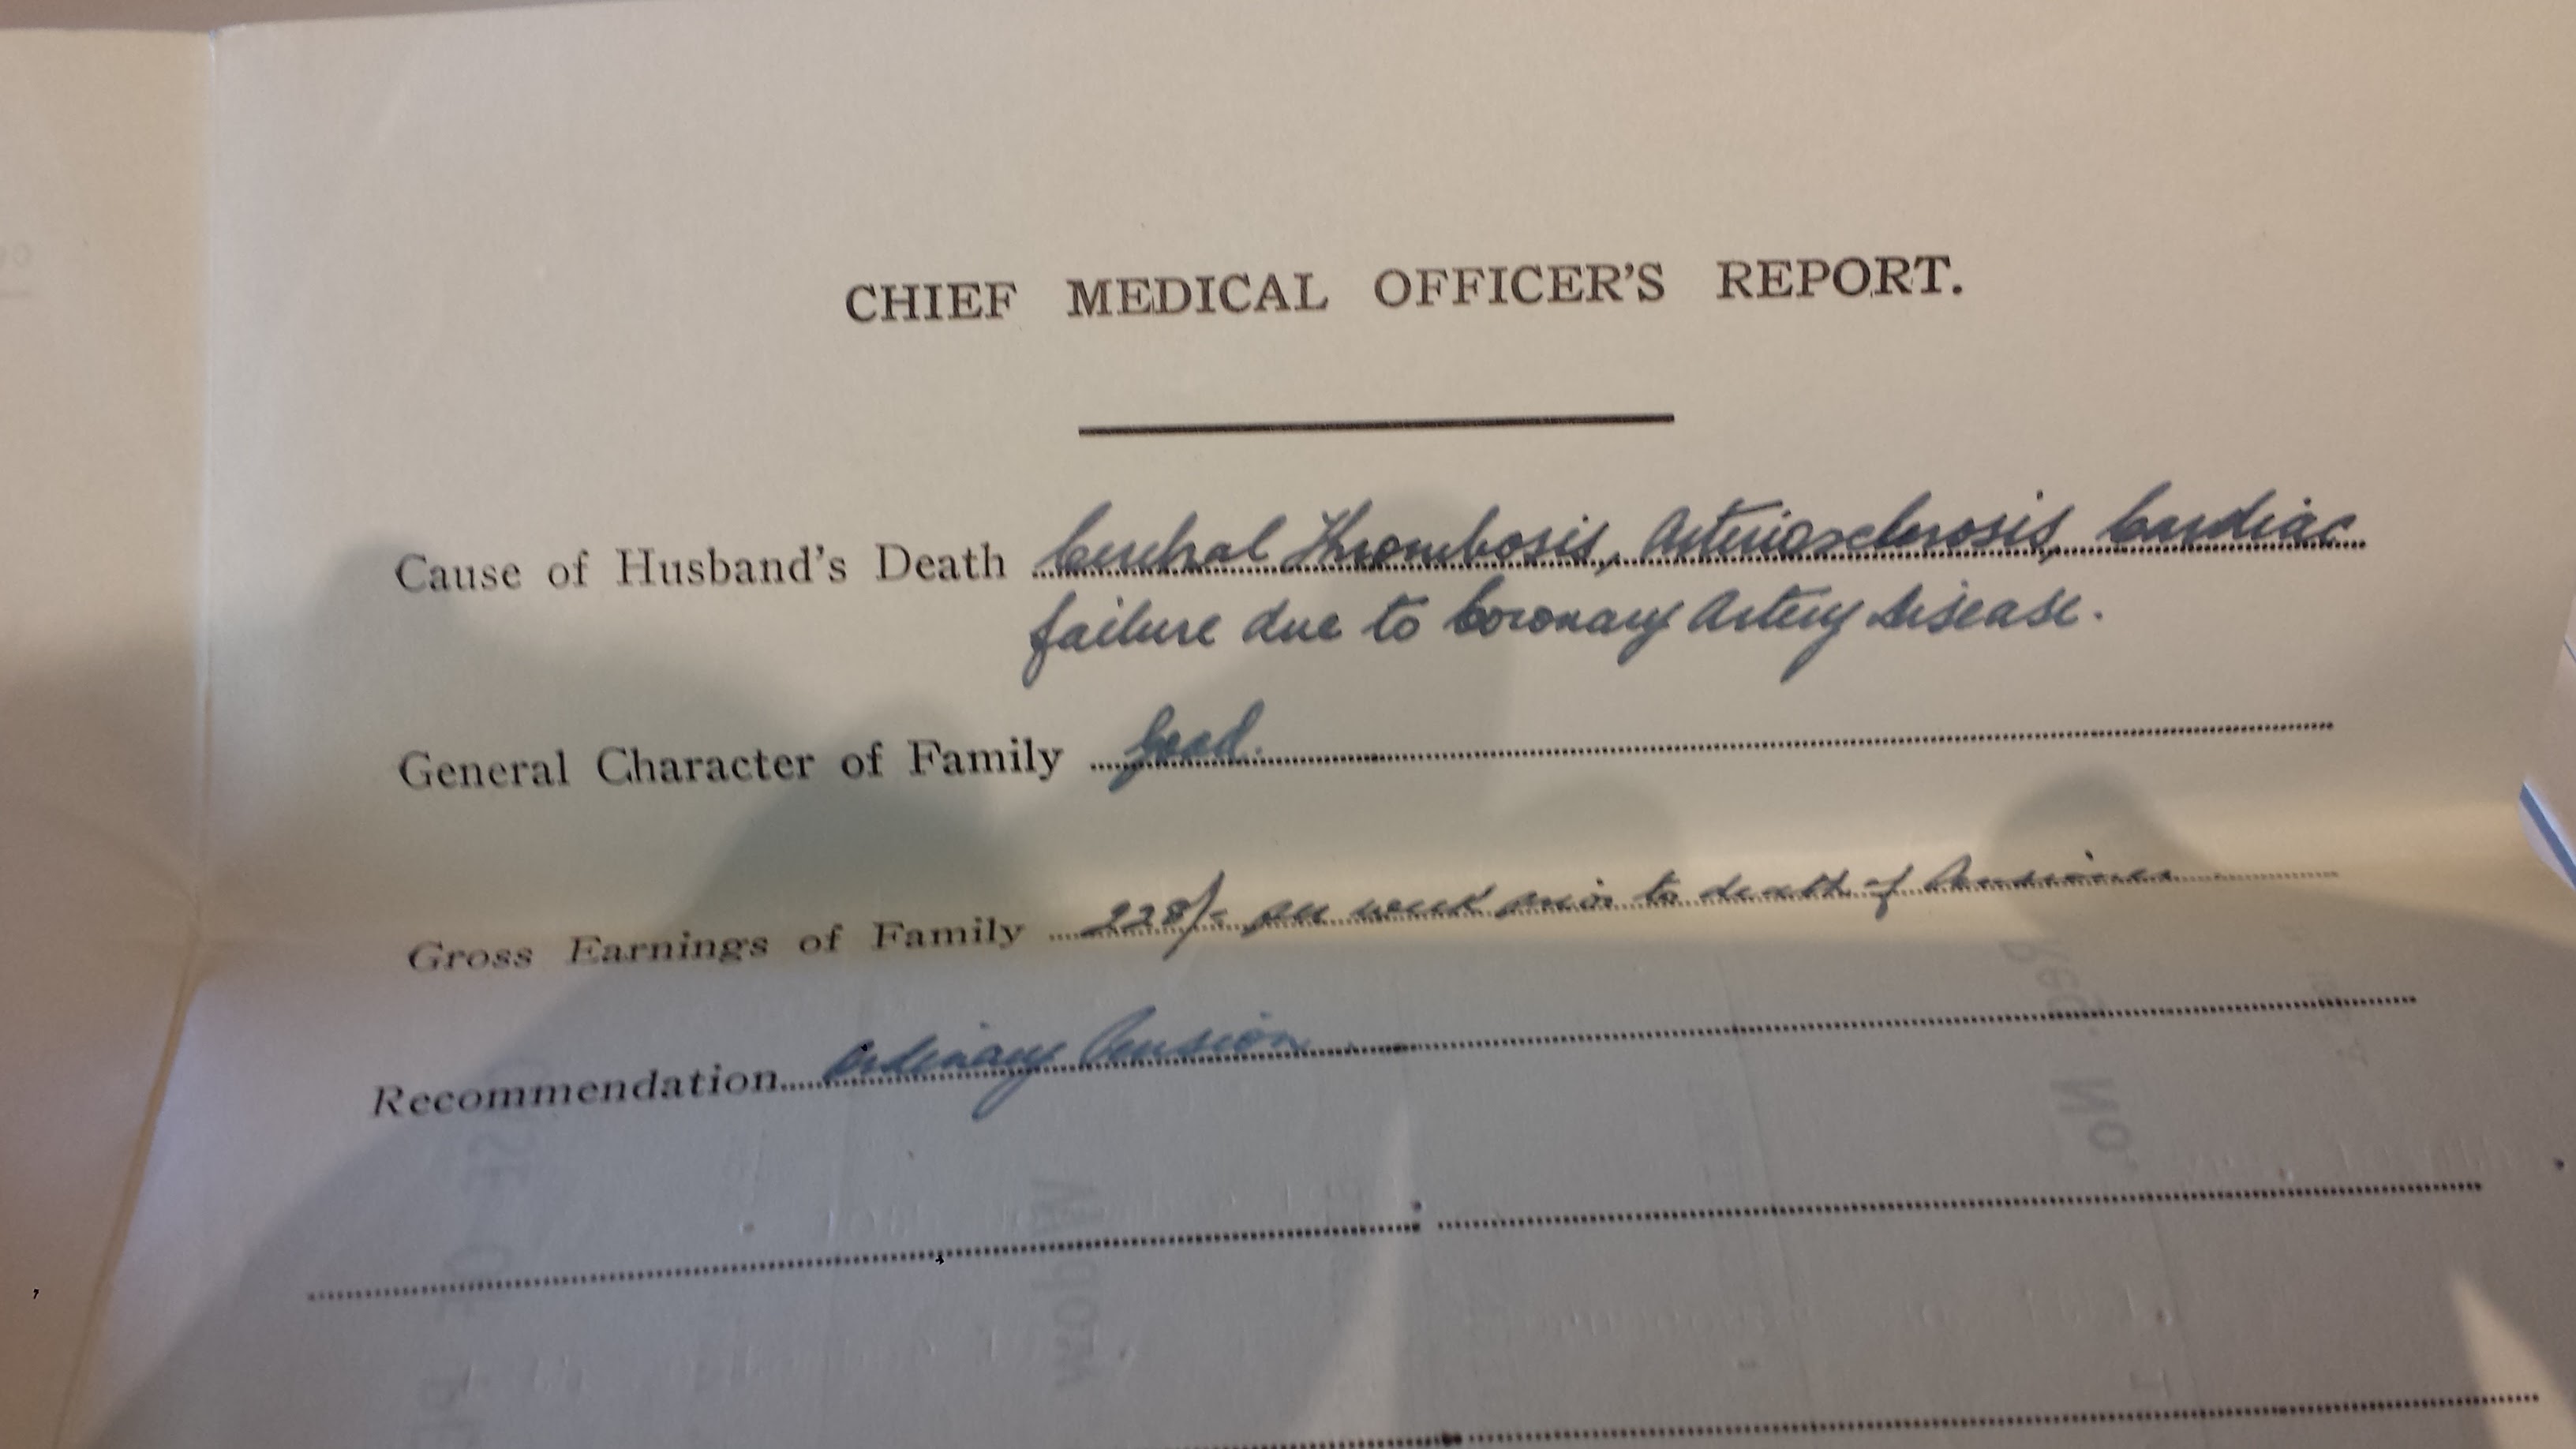 CHIEF MEDICAL OFFICER'S REPORT.
Cause of Husband's Death Cerebral Thrombosis, Arteriosclerosis, Cardiac
failure due to Coronary Artery Disease.
General Character of Family Good.
Gross Earnings of Family 228/- per week prior to death of Pensioner
Recommendation Ordinary Pension